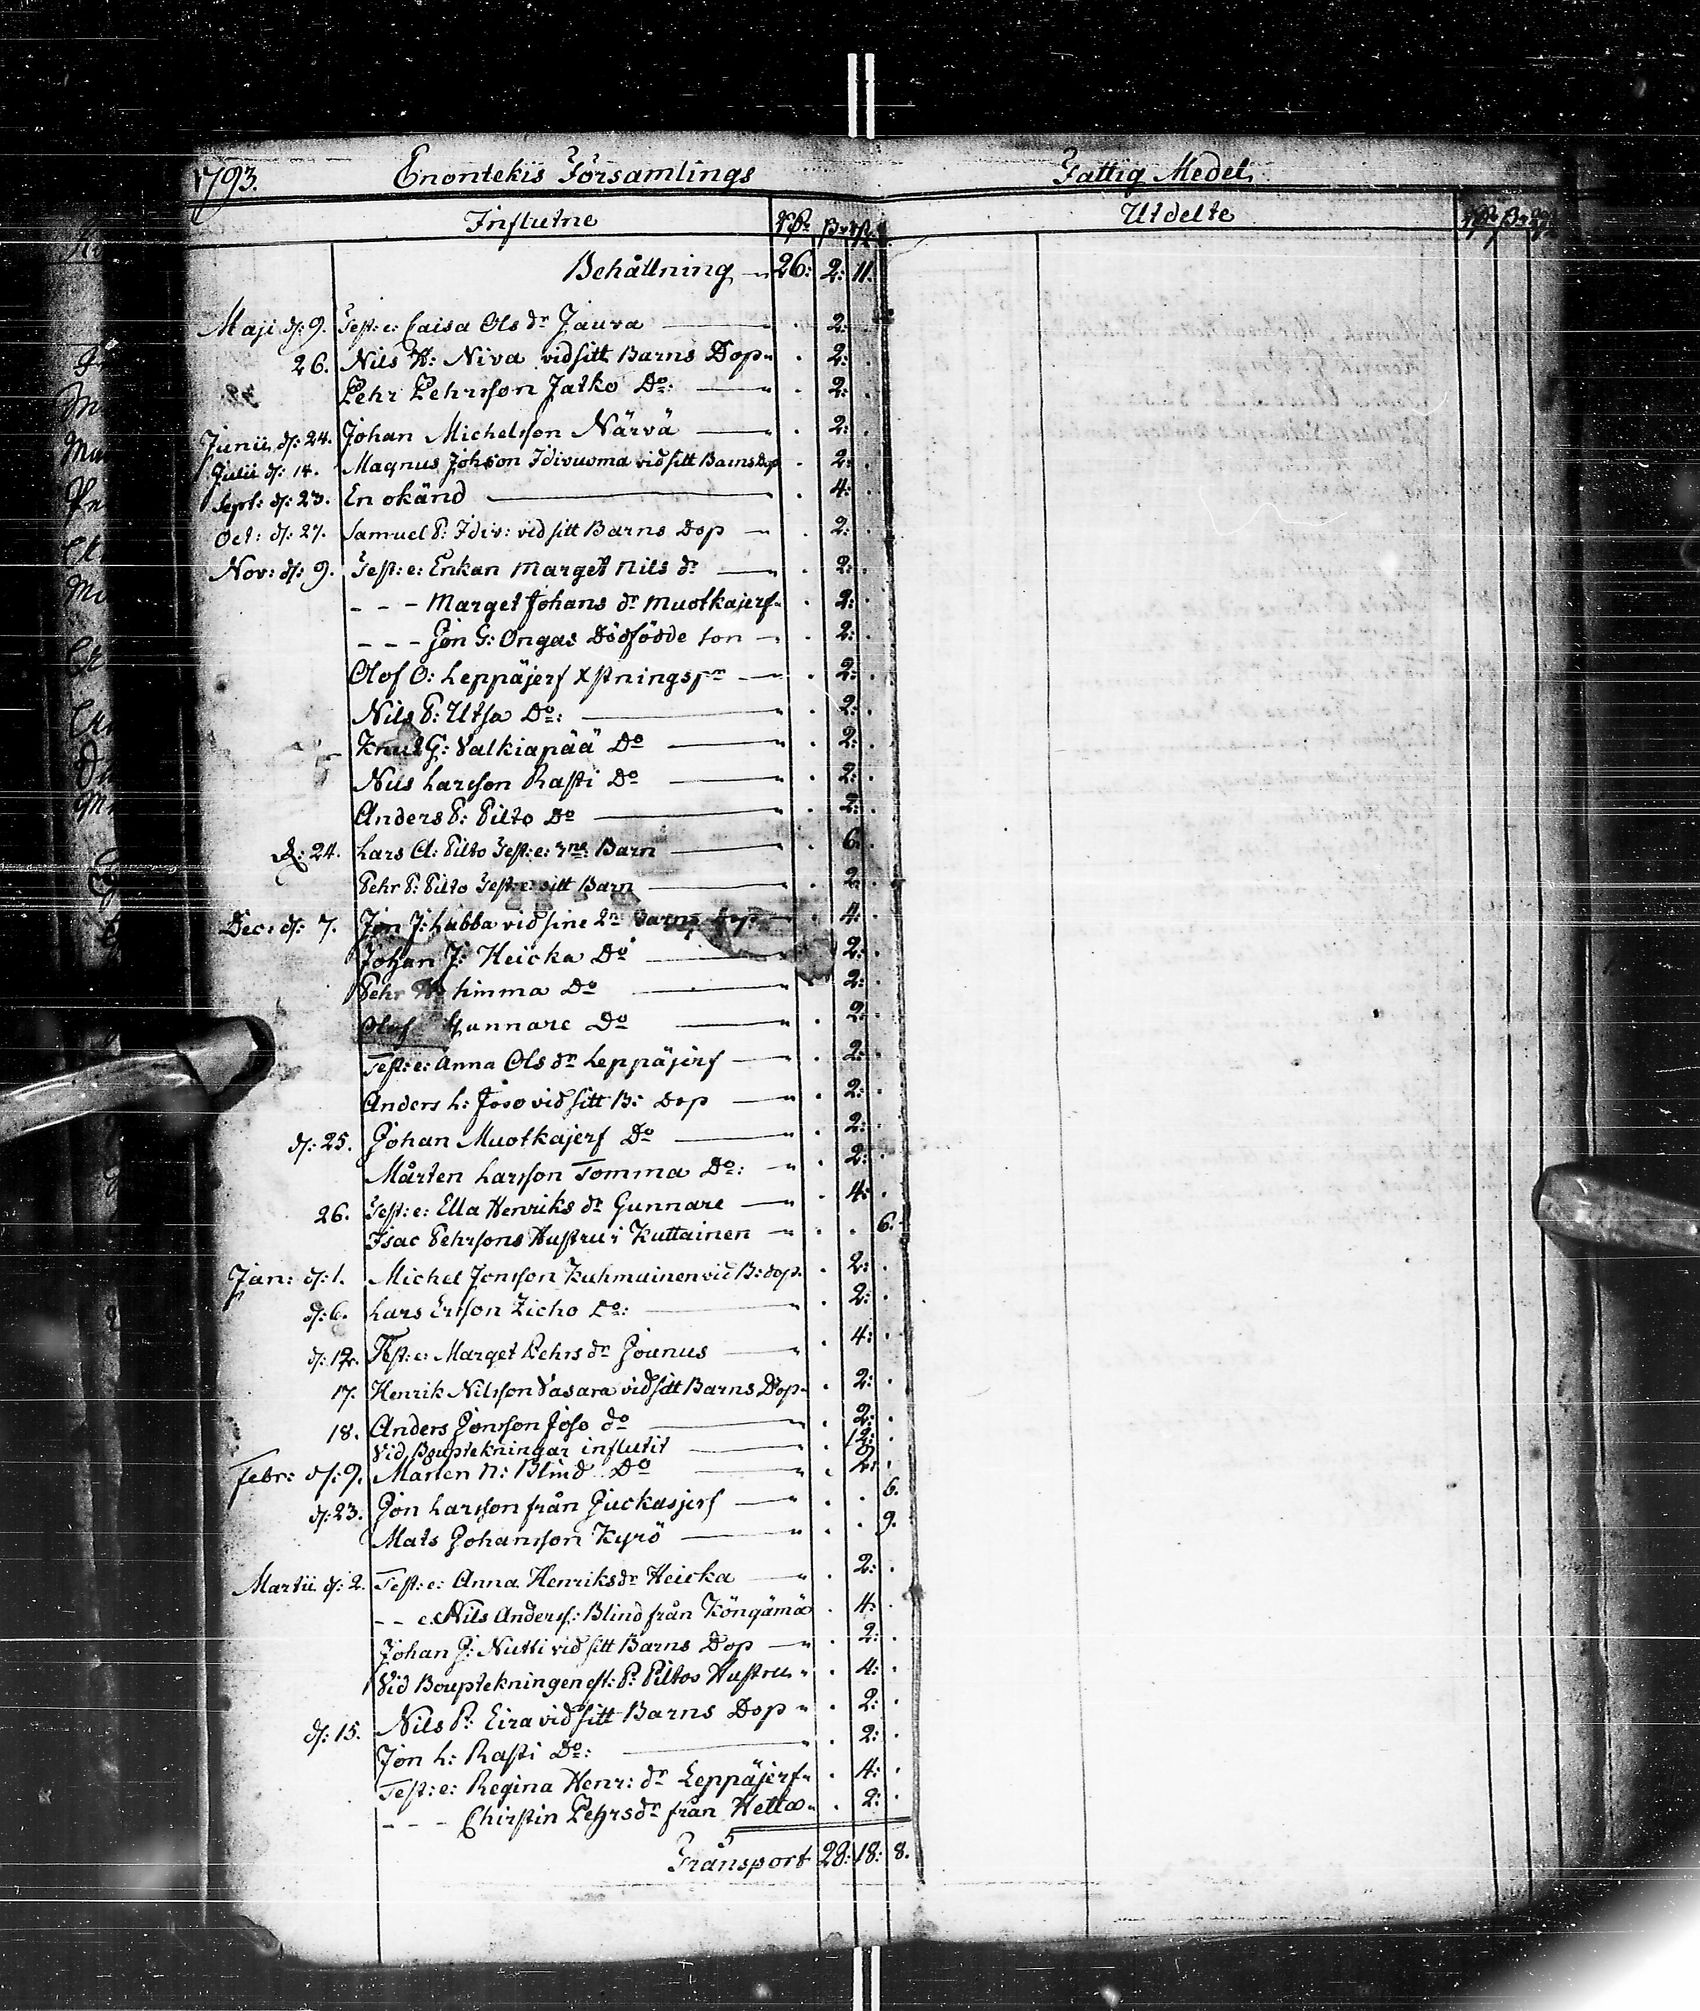 1793. Enontekis Församlings Fattig Medel
Influtne Utdelte
Behållning 26: 2: 11.
Maji d: 9. Test: e: Caisa Ols dr Jaura 2:
26. Nils H: Niva vid sitt Barns Dop 2:
Pehr Pehrsson Jatko Do: 2:
Junii d: 24. Johan Michelsson Närvä 2:
Julii d: 14. Magnus Johsson Idivuoma vid sitt Barns Dop 2:
Sept: d: 23. En okänd 4:
Oct: d: 27. Samuel P: Idiv: vid sitt Barns Dop 2:
Nov: d: 9. Test: e: Enkan Marget Nils dr 2:
- - - Marget Johans dr Muotkajerf 2:
- - - Jon G: Ongas Dödfödde son 2:
Olof O: Leppäjerf Xstningspr 2:
Nils P: Utsa Do: 2:
Knut G: Valkiapää Do 2:
Nils Larsson Rasti Do 2:
Anders P: Pilto Do 2:
d: 24. Lars A: Pilto Test: e: 3ne Barn 6.
Pehr P: Pilto Test: e: sitt Barn 2.
Dec: d: 7. Jon J: Labba vid sine 2n Barns Dop 4:
Johan J: Heicka Do 2:
Pehr Kimma Do 2:
Olof Gunnare Do 2:
Test: e: Anna Ols dr Leppäjerf 2:
Anders L: Joso vid sitt B: Dop 2:
d: 25. Johan Muotkajerf Do 2:
Mårten Larsson Tomma Do: 2:
26. Test: e: Ella Henriks dr Gunnare 4:
Isac Pehrsons Hustru i Kuttainen 6.
Jan: d: 1. Michel Jonsson Kuhmuinen vid B: dop 2:
d: 6. Lars Ersson Zicho Do: 2:
d: 12. Test: e: Marget Pehrs dr Jounus 4:
17. Henrik Nilsson Vasara vid sitt Barns Dop 2:
18. Anders Jonsson Joso do 2:
Vid Bouptekningar influtit 12:
Febr: d: 9. Mårten N: Blind Do 2:
d: 23. Jon Larsson från Juckasjerf 6.
Mats Johansson Kyrö 9.
Martii d: 2. Test: e: Anna Henriksdr Heicka 2:
- - e: Nils Anderss: Blind från Köngämä 4:
Johan J: Nutti vid sitt Barns Dop 2:
Vid Bouptekningen eft: P: Piltos Hustru 4:
d: 15. Nils P: Eira vid sitt Barns Dop 2:
Jon L: Rasti Do: 2:
Test: e: Regina Henr: dr Leppäjerf 4:
- - - Chirstin Pehrsdr från Hetta 2:
Transport 28: 18: 8.